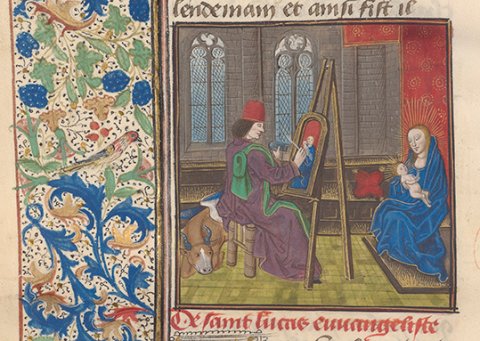 lendemain et ainsi fist il
De saint lucas euuangeliste